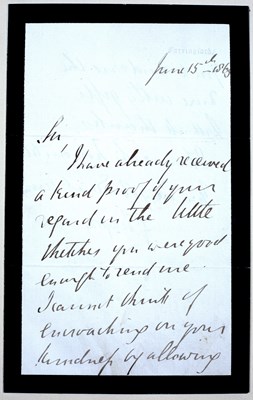 June 15th 186
Sir,
I have already received
a kind proof of your
regard in the little
sketches you were good
enough to send me.
I cannot think of
encroaching on your
kindness by allowing